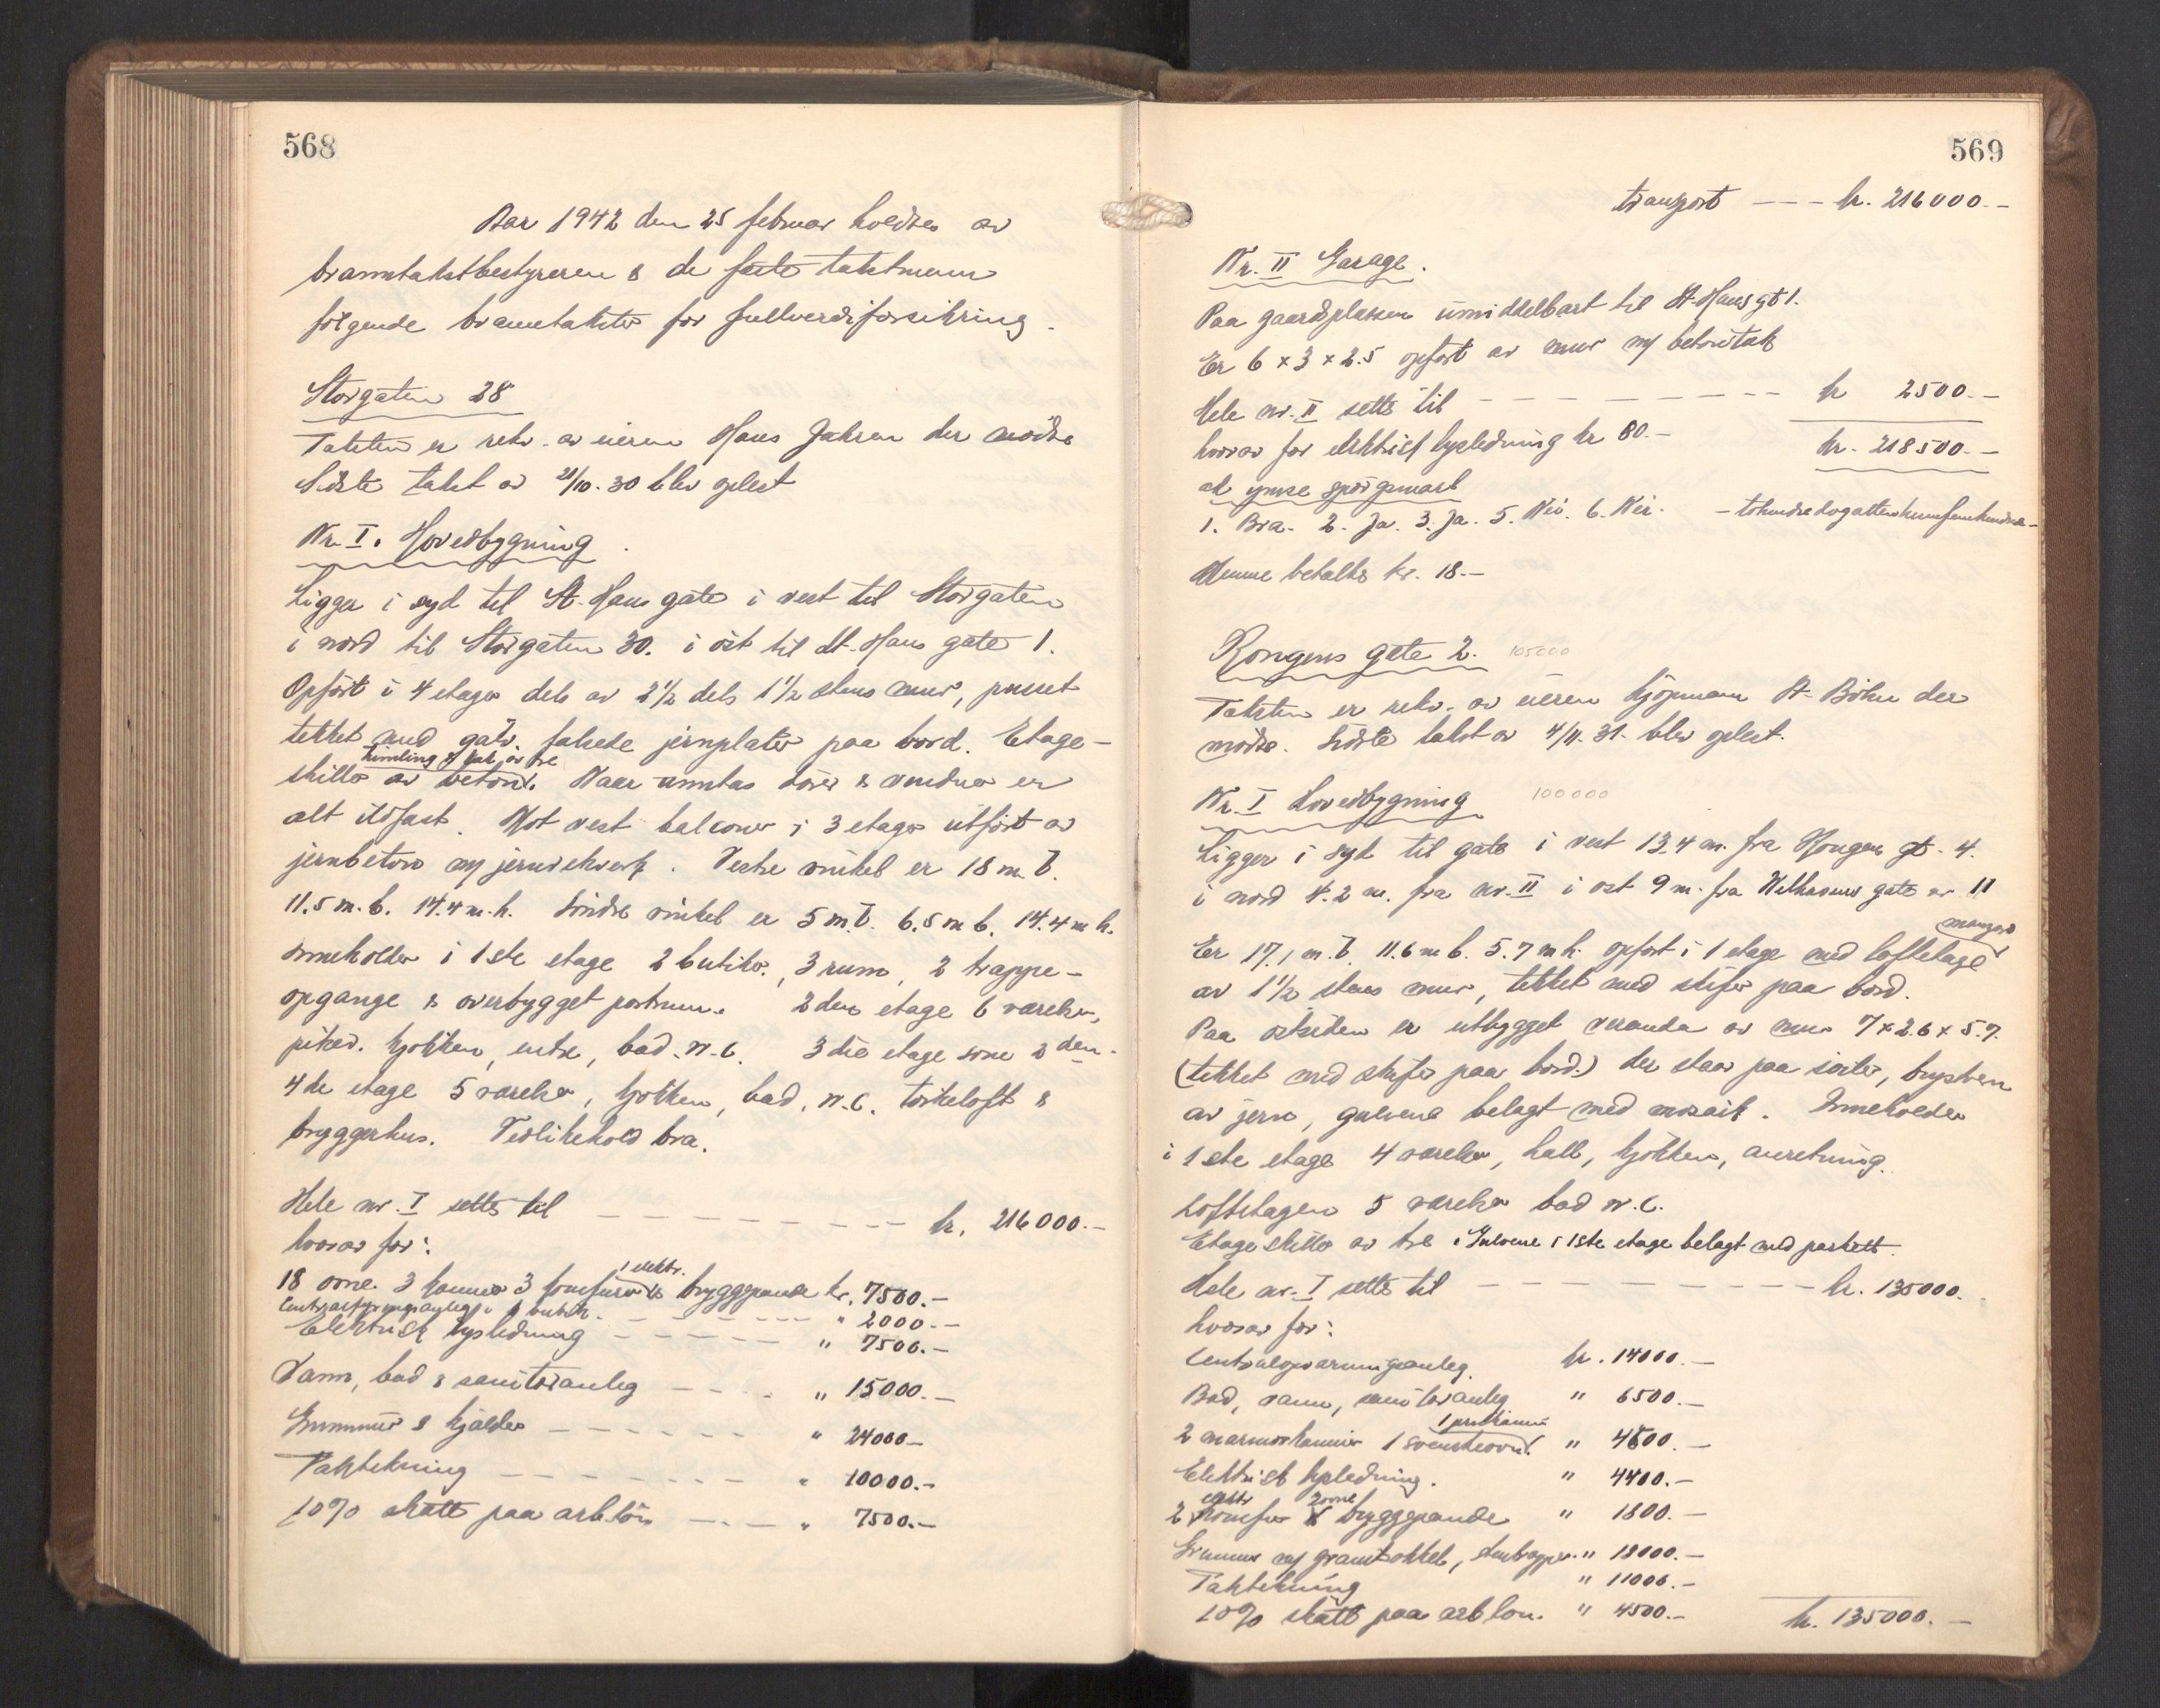 568
Aar 1942 den 25 februar holdtes av
branntakstbestyreren & de faste takstmenn
følgende branntakster for fullverdiforsikring.
Storgaten 28
Taksten er rekv. av eieren Hans Jahren der mødte
Sidste takst av 21/10. 30 blev oplest
Nr. I. Hovedbygning.
Ligger i syd til St. Hans gate i vest til Storgaten
i nord til Storgaten 30. i øst til St. Hans gate 1.
Opført i 4 etager dels av 2 1/2 dels 1 1/2 stens mur, pusset
tekket med galv. falsede jernplater paa bord. Etage-
himling & tak av tre
skiller av beton. Naar unntas dører & vinduer er
alt ildfast. Mot vest balconer i 3 etager utført av
jernbeton m/ jernrekverk. Vestre vinkel er 18 m. l.
11.5 m. b. 14.4 m. h. Søndre vinkel er 5 m. l. 6.5 m b. 14.4 m h.
Inneholder i 1ste etage 2 butiker, 3 rum, 2 trappe-
opgange & overbygget portrum. 2den etage 6 værelser,
pikev. kjøkken, entre, bad. w.c. 3die etage som 2den.
4de etage 5 værelser, kjøkken, bad, w.c. tørkeloft &
bryggerhus. Vedlikehold bra.
Hele nr. I settes til — — — kr. 216000.-
hvorav for:
1 elektr.
18 ovne. 3 kaminer 3 komfurer & bryggepande kr. 7500.-
Centralfyringsanleg i 1 butik. — — " 2000.-
Elektrisk lysledning — — — " 7500.-
Vann, bad & sanitæranleg — — " 15000.-
Grunnmur & kjelder — — — " 24000-
Taktekning — — — " 10000.-
10% skatt paa arb.løn — — " 7500.-
569
transport — — — kr. 216000.-
Nr. II Garage.
Paa gaardsplassen umiddelbart til St. Hans gt 1.
Er 6 x 3 x 2.5 opført av mur m/ betontak
Hele nr. II settes til — — — kr 2500.-
hvorav for elektrisk lysledning kr 80.-
kr. 218500.-
ad ymse spørgsmaal
1. Bra. 2. Ja. 3. Ja. 5. Nei. 6. Nei. - tohundredogattentusenfemhundre -
Denne betaltes kr. 18.-
Kongens gate 2. 105000
Taksten er rekv. av eieren kjøpmann St. Bøhn der
mødte. Sidste takst av 4/11. 31. blev oplest.
Nr. I Hovedbygning 100000
Ligger i syd til gate i vest 13.4 m. fra Kongens gt. 4.
i nord 4.2 m. fra nr. II i øst 9 m. fra Welhavens gate nr 11
mansard
Er 17.1 m. l. 11.6 m b. 5.7 m h. opført i 1 etage med loftetage
av 1 1/2 stens mur, tekket med skifer paa bord.
Paa østsiden er utbygget veranda av mur 7 x 2.6 x 5.7.
(tekket med skifer paa bord.) der staar paa søiler, brystvern
av jern, gulvene belagt med mosaik. Inneholder
i 1ste etage 4 værelser, hall, kjøkken, anretning.
Loftetagen 5 værelser bad w.c.
Etageskiller av tre. Gulvene i 1ste etage belagt med parkett.
Hele nr. I settes til — — — kr. 135000.
hvorav for:
Centralopvarmingsanleg. kr. 14000.-
Bad, vann, sanitæranleg " 6500.-
2 marmorkaminer 1 svenskeovn. " 4800.-
Elektrisk lysledning. " 4400.-
elektr 2 ovne
2 komfur & bryggepande " 1800.-
Grunnmur m/ granitsokkel, stentrapper. " 18000.-
Taktekning " 11000.-
10% skatt paa arb løn. " 4500.- kr. 135000.-